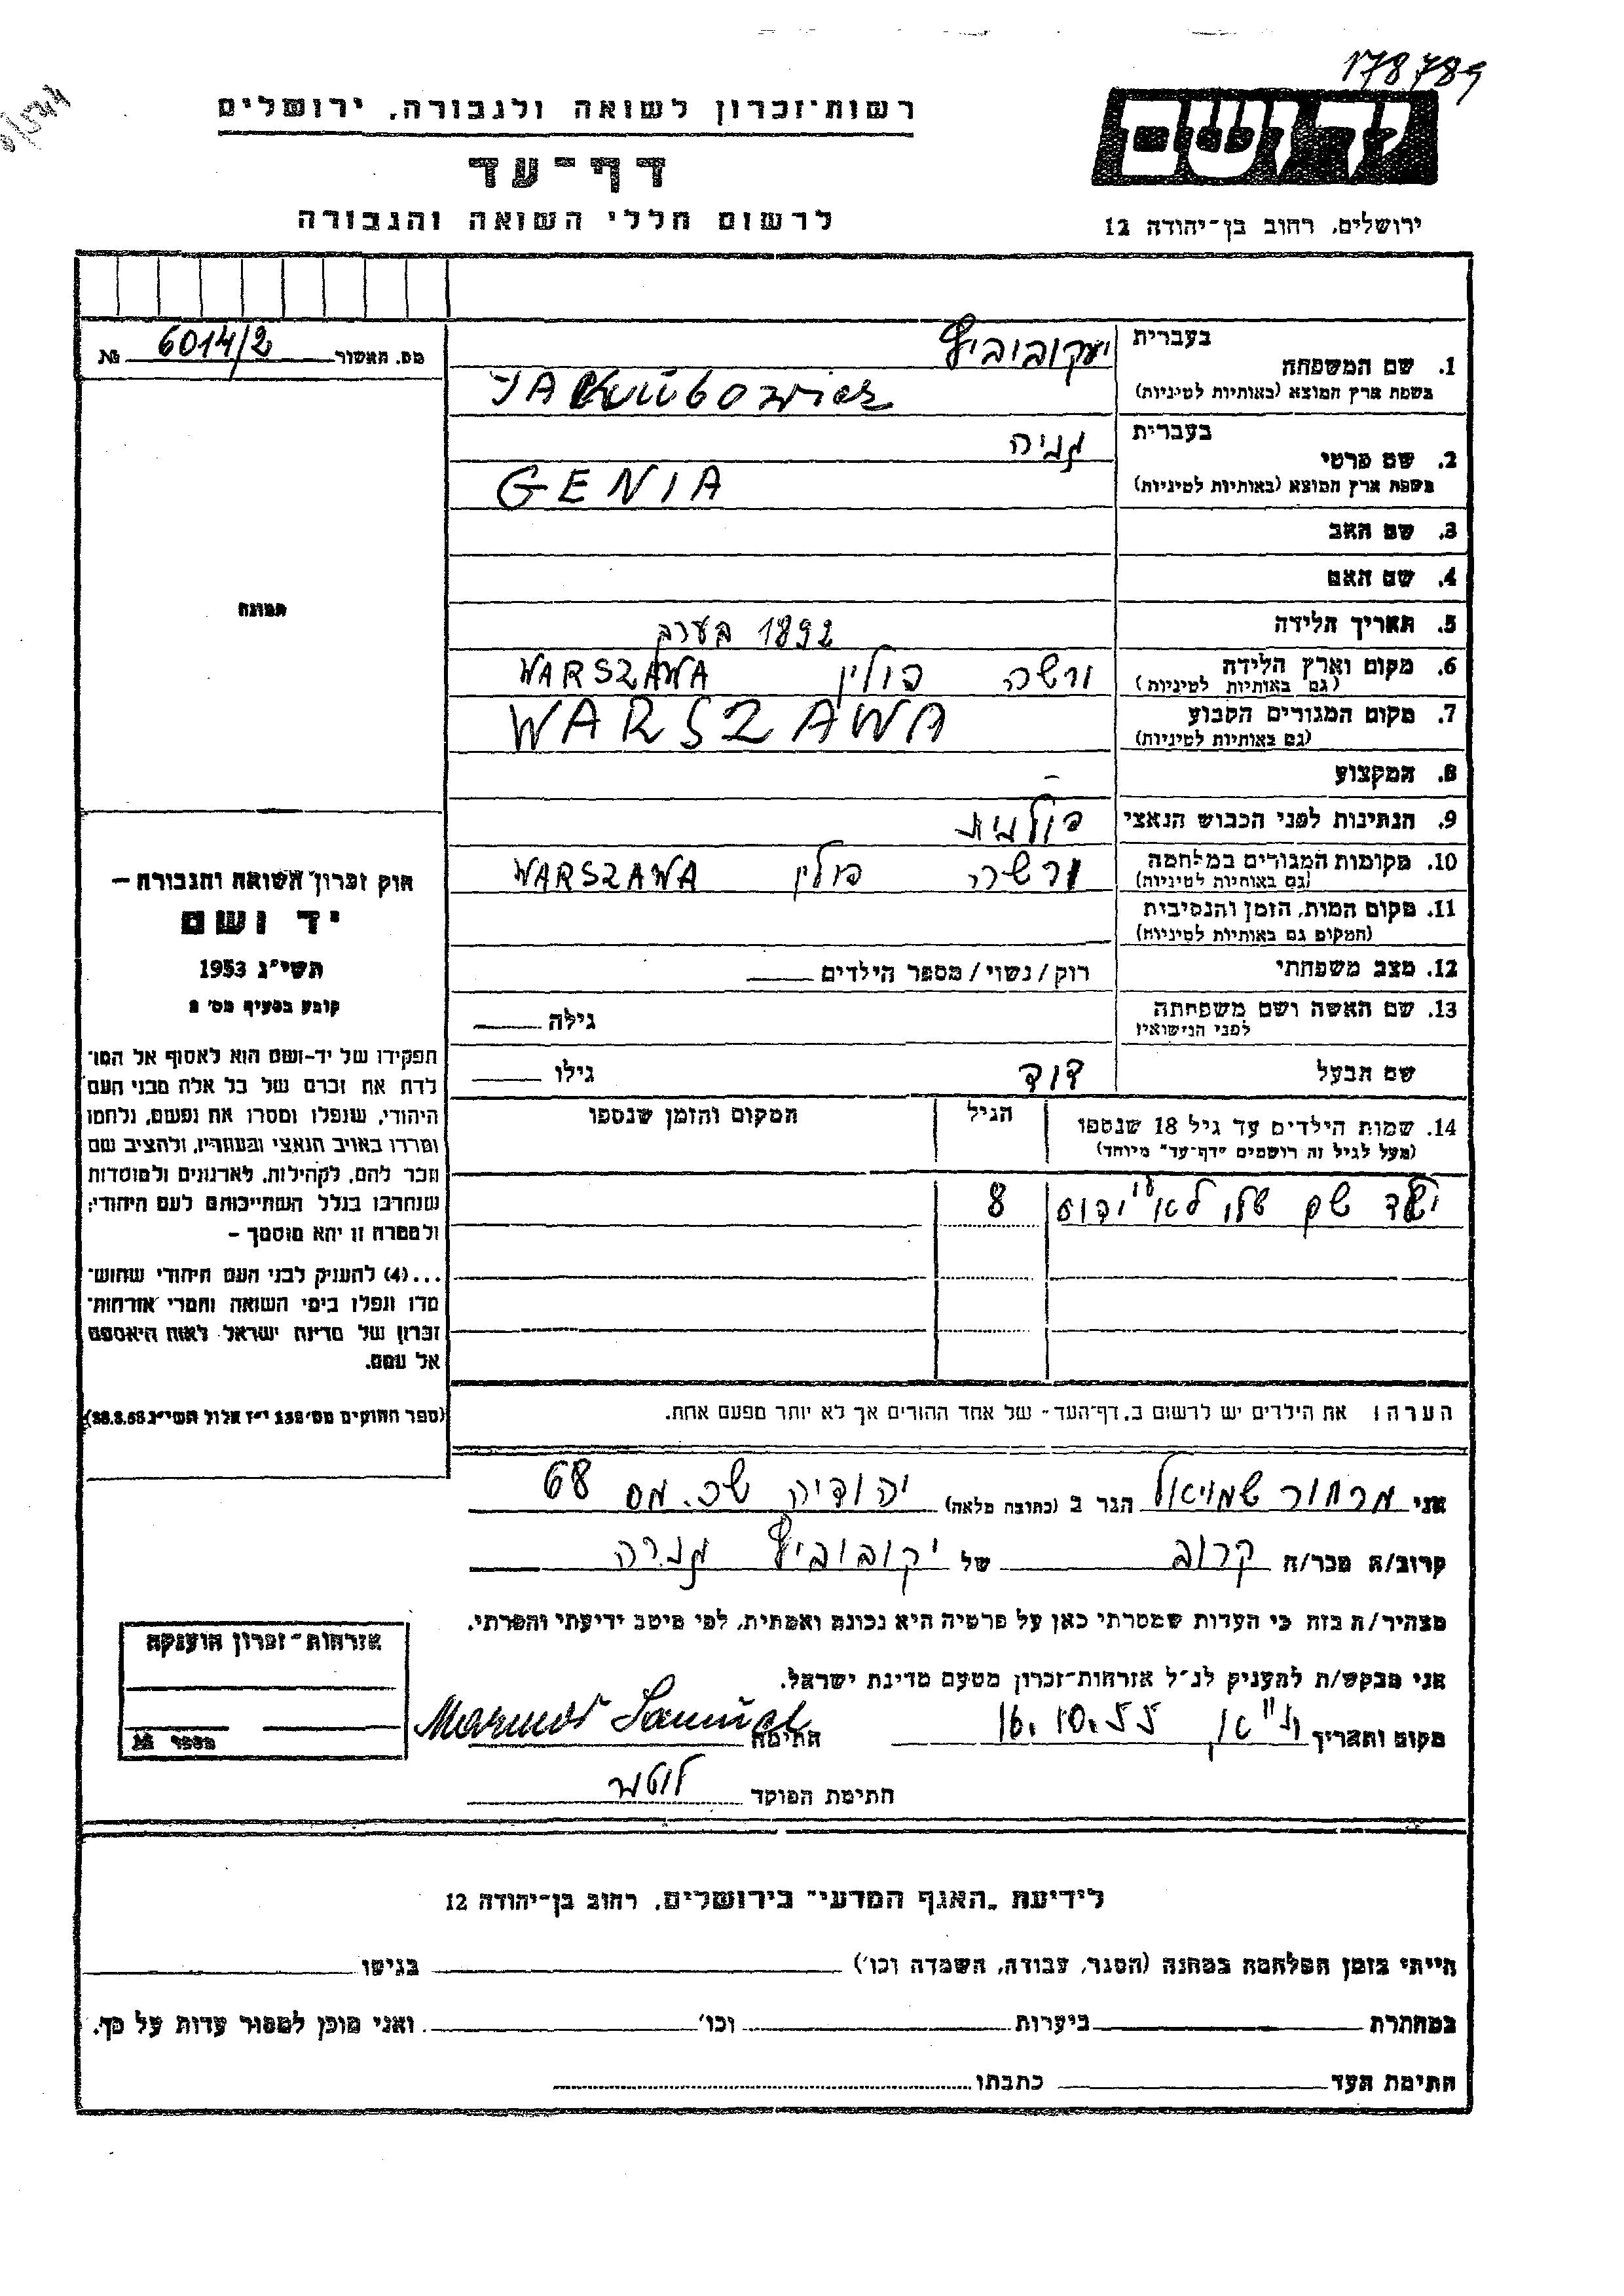 178789
רשות־זכרון לשואה ולגבורה, ירושלים
דף־עד
לרשום חללי השואה והגבורה
יד ושם
ירושלים, רחוב בן־יהודה 12
מס. האשור 6014/2 №
1. שם המשפחה
בעברית יעקוביביץ
בשפת ארץ המוצא (באותיות לטיניות) JAKUBOWICZ
2. שם פרטי
בעברית גניה
בשפת ארץ המוצא (באותיות לטיניות) GENIA
3. שם האב
4. שם האם
5. תאריך הלידה 1892 בערב
6. מקום וארץ הלידה ורשה פולין WARSZAWA
(גם באותיות לטיניות)
7. מקום המגורים הקבוע WARSZAWA
(גם באותיות לטיניות)
8. המקצוע –
9. הנתינות לפני הכבוש הנאצי פולנית
10. מקומות המגורים במלחמה ורשה פולין WARSZAWA
(גם באותיות לטיניות)
11. מקום המות, הזמן והנסיבות
(המקום גם באותיות לטיניות)
12. מצב משפחתי רוק/נשוי/מספר הילדים
13. שם האשה ושם משפחתה גילה
לפני הנישואין
שם הבעל דוד גילו
14. שמות הילדים עד גיל 18 שנספו הגיל המקום והזמן שנספו
(מעל לגיל זה רושמים "דף־עד" מיוחד)
ילד שם שלו לא ידוע 8
הערה: את הילדים יש לרשום ב"דף־העד" של אחד ההורים אך לא יותר מפעם אחת.
תמונה
חוק זכרון השואה והגבורה –
יד ושם
תשי"ג 1953
קובע בסעיף מס' 2
תפקידו של יד־ושם הוא לאסוף אל המו־
לדת את זכרם של כל אלה מבני העם
היהודי, שנפלו ומסרו את נפשם, נלחמו
ומרדו באויב הנאצי ובעוזריו, ולהציב שם
וזכר להם, לקהילות, לארגונים ולמוסדות
שנחרבו בגלל השתייכותם לעם היהודי;
ולמטרה זו יהא מוסמך –
...(4) להעניק לבני העם היהודי שהוש־
מדו ונפלו בימי השואה והמרי אזרחות־
זכרון של מדינת ישראל לאות היאספם
אל עמם.
(ספר החוקים מס' 132 י"ז אלול תשי"ג 28.8.53)
אני מרחור שמויאל הגר ב (כתובת מלאה) יהודיה שכ. מס 68
קרוב/ה מכר/ה קרוב של יקוביביץ גניה
מצהיר/ה בזה כי העדות שמסרתי כאן על פרטיה היא נכונה ואמתית, לפי מיטב ידיעתי והכרתי.
אני מבקש/ת להעניק לנ"ל אזרחות־זכרון מטעם מדינת ישראל.
מקום ותאריך 16.10.55 חתימה
חתימת הפוקד
אזרחות־זכרון הוענקה
מספר №
לידיעת "האגף המדעי" בירושלים, רחוב בן־יהודה 12
הייתי בזמן המלחמה במחנה (הסגר, עבודה, השמדה וכו') בגיטו
במחתרת ביערות וכו' ואני מוכן למסור עדות על כך.
חתימת העד כתבתו